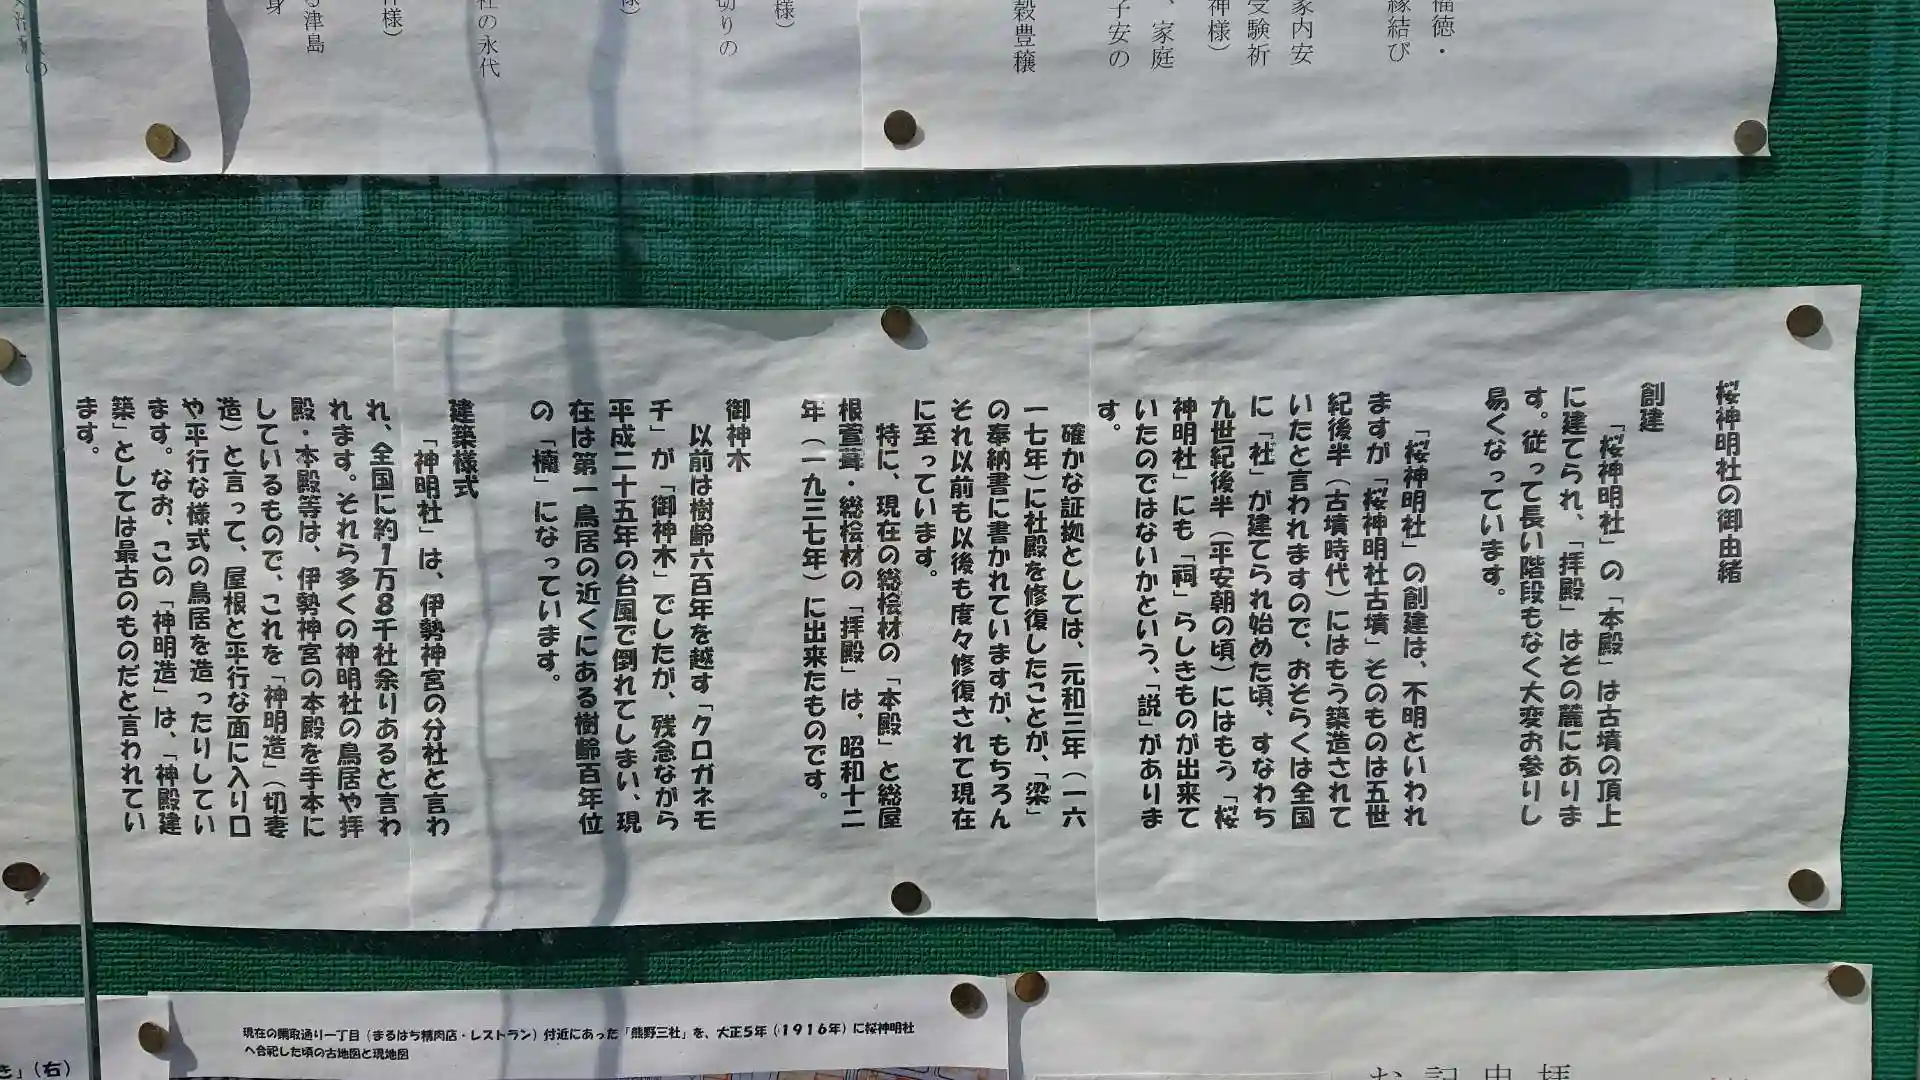 福徳・
縁結び
家内安
受験祈
神様）
、家庭
子安の
穀豊穣
様）
切りの
様）
社の永代
神様）
る津島
身
桜神明社の御由緒
創建
「桜神明社」の「本殿」は古墳の頂上
に建てられ、「拝殿」はその麓にありま
す。従って長い階段もなく大変お参りし
易くなっています。
「桜神明社」の創建は、不明といわれ
ますが「桜神明社古墳」そのものは五世
紀後半（古墳時代）にはもう築造されて
いたと言われますので、おそらくは全国
に「社」が建てられ始めた頃、すなわち
九世紀後半（平安朝の頃）にはもう「桜
神明社」にも「祠」らしきものが出来て
いたのではないかという、「説」がありま
す。
確かな証拠としては、元和三年（一六
一七年）に社殿を修復したことが、「梁」
の奉納書に書かれていますが、もちろん
それ以前も以後も度々修復されて現在
に至っています。
特に、現在の総桧材の「本殿」と総屋
根萱葺・総桧材の「拝殿」は、昭和十二
年（一九三七年）に出来たものです。
御神木
以前は樹齢六百年を越す「クロガネモ
チ」が「御神木」でしたが、残念ながら
平成二十五年の台風で倒れてしまい、現
在は第一鳥居の近くにある樹齢百年位
の「楠」になっています。
建築様式
「神明社」は、伊勢神宮の分社と言わ
れ、全国に約１万８千社余りあると言わ
れます。それら多くの神明社の鳥居や拝
殿・本殿等は、伊勢神宮の本殿を手本に
しているもので、これを「神明造」（切妻
造）と言って、屋根と平行な面に入り口
や平行な様式の鳥居を造ったりしてい
ます。なお、この「神明造」は、「神殿建
築」としては最古のものだと言われてい
ます。
現在の鯛取通り一丁目（まるはち精肉店・レストラン）付近にあった「熊野三社」を、大正５年（１９１６年）に桜神明社
へ合祀した頃の古地図と現地図
き」（右）